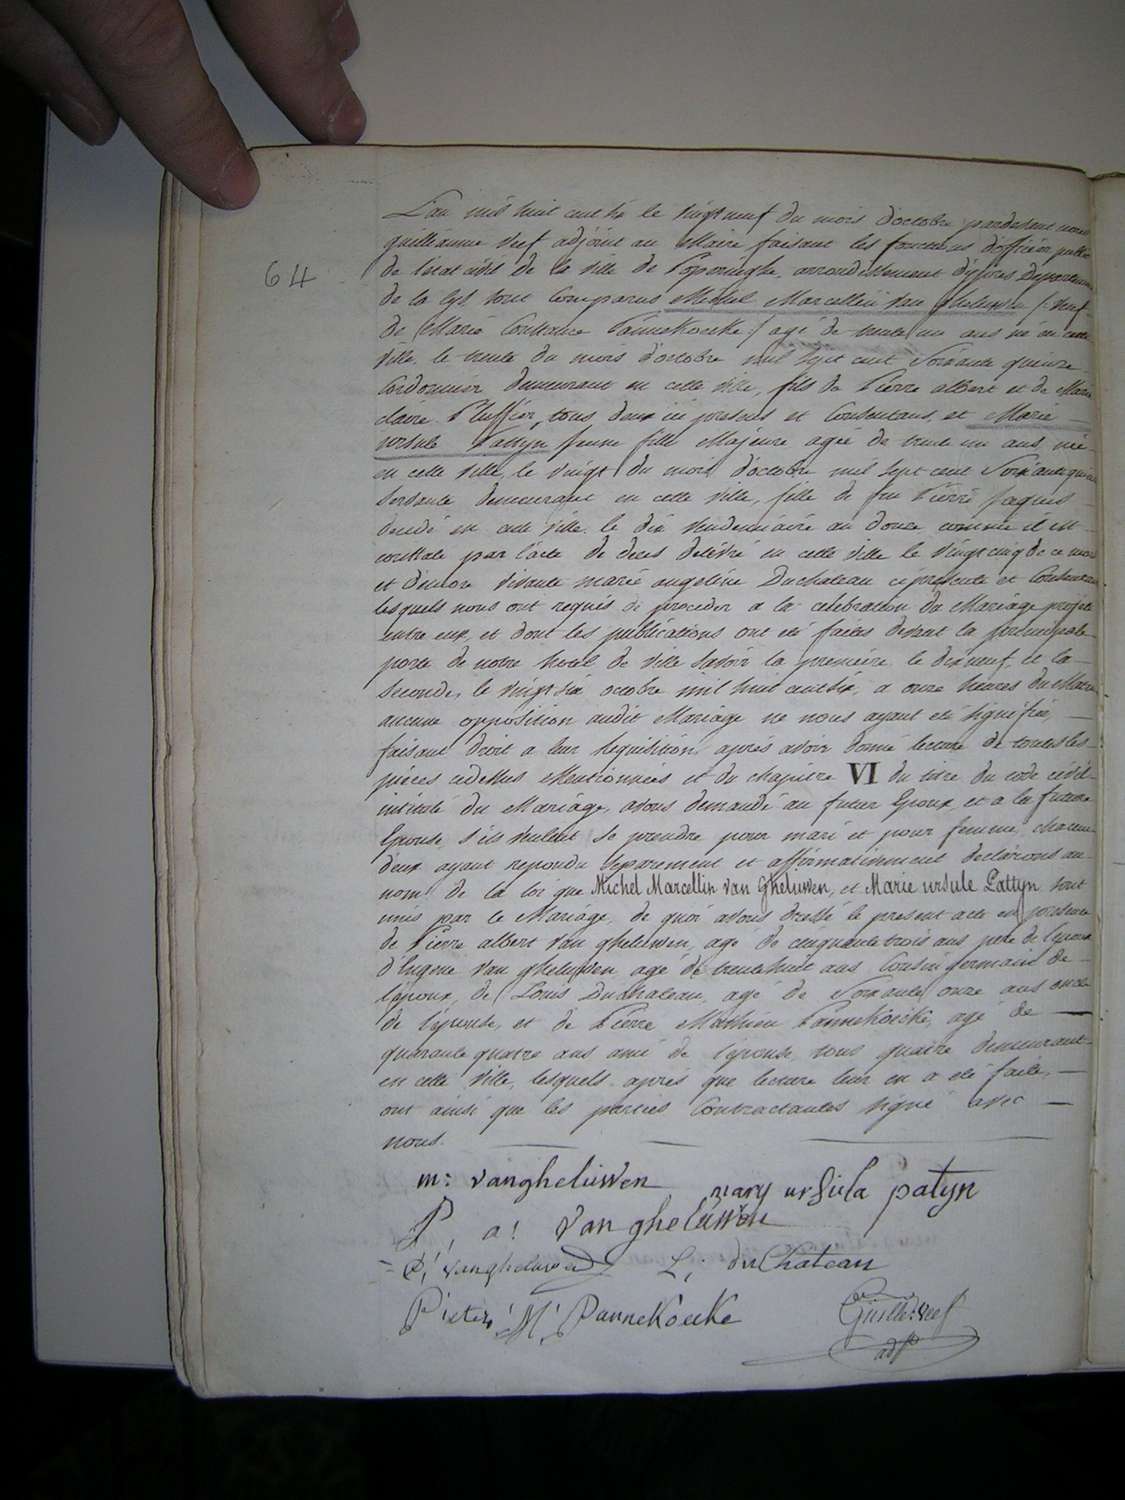 L'an mil huit cent six le vingt neuf du mois d'octobre pardevant nous
guillaume Neef adjoint au Maire faisant les fonctions d'officier public
64 de l'etat civil de la ville de Poperinghe, arrondissement d'ypres Departement
de la Lys sont Comparus Michel Marcellin Van Gheluwen (: veuf
de Marie Constance Pannekoecke :) agé de trente un ans né en cette
ville, le trente du mois d'octobre mil sept cent Soixante quinze
Cordonnier demeurant en cette ville, fils de Pierre albert et de Marie
claire tous deux ici presens et Consentans, et Marie
ursule Pattyn jeune fille Majeure agée de trente un ans, née
en cette ville, le vingt du mois d'octobre mil sept cent Soixante quinze
Servante demeurant en cette ville, fille de feu Pierre jaques
decedé en cette ville le dix vendemiaire an douze comme il en
constate par l'acte de deces delivré en cette ville le vingt cinq de ce mois
et d'encore vivante marie angeline Duchateau ci presente et Consentante
lesquels nous ont requis de proceder a la celebration du Mariage projeté
entre eux, et dont les publications ont eté faites devant la principale
porte de notre hotel de ville savoir la premiere le dix neuf, et la
seconde, le vingt six octobre mil huit cent six, a onze heures du Matin
aucune opposition audit Mariage ne nous ayant eté signifiée,
faisant droit a leur requisition, aprés avoir donné lecture de toutes les
pièces cidessus Mentionnées et du chapitre VI du titre du code civil
intitulé du Mariage, avons demandé au futur Epoux et a la future
Epouse s'ils veulent se prendre pour mari et pour femme, chacun
d'eux ayant repondu separement et affirmativement declarons au
nom de la loi que Michel Marcellin van Gheluwen, et Marie ursule Pattyn sont
unis par le Mariage, de quoi avons dressé le present acte en presence
de Pierre albert Van gheluwen, agé de cinquante trois ans pere de l'epoux
d'Eugene Van gheluwen agé de trente huit ans Cousin germain de
l'epoux, de Louis Duchateau, agé de Soixante onze ans oncle
de l'epouse, et de Pierre Mathieu Pannekoecke, agé de
quarante quatre ans ami de l'epouse, tous quatre demeurant
en cette ville, lesquels aprés que lecture leur en a eté faite,
ont ainsi que les parties Contractantes signé avec
nous.
m: vangheluwen mary ursula patyn
P, a: Van gheluwen
vangheluwen L: du Chateau
Pieter M Pannekoecke Guill: Neef
adj